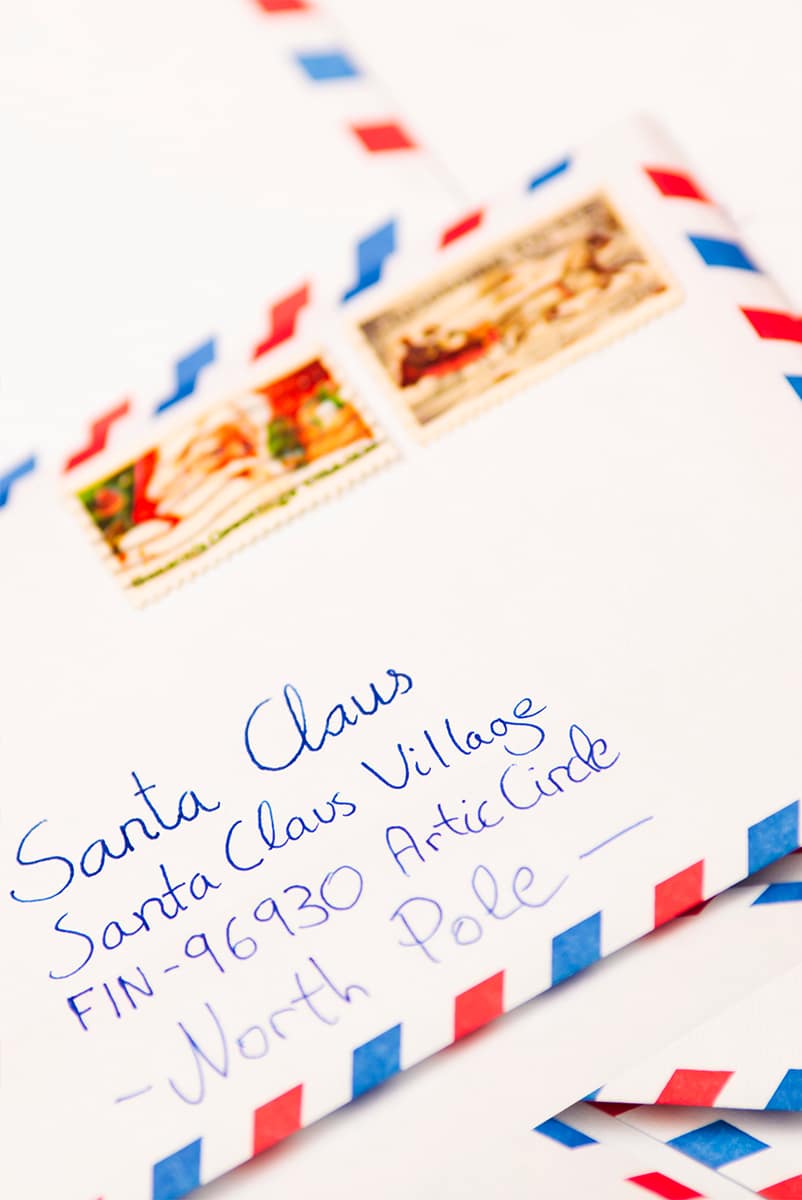 Santa Claus
Santa Claus Village
FIN-96930 Artic Circle
- North Pole -